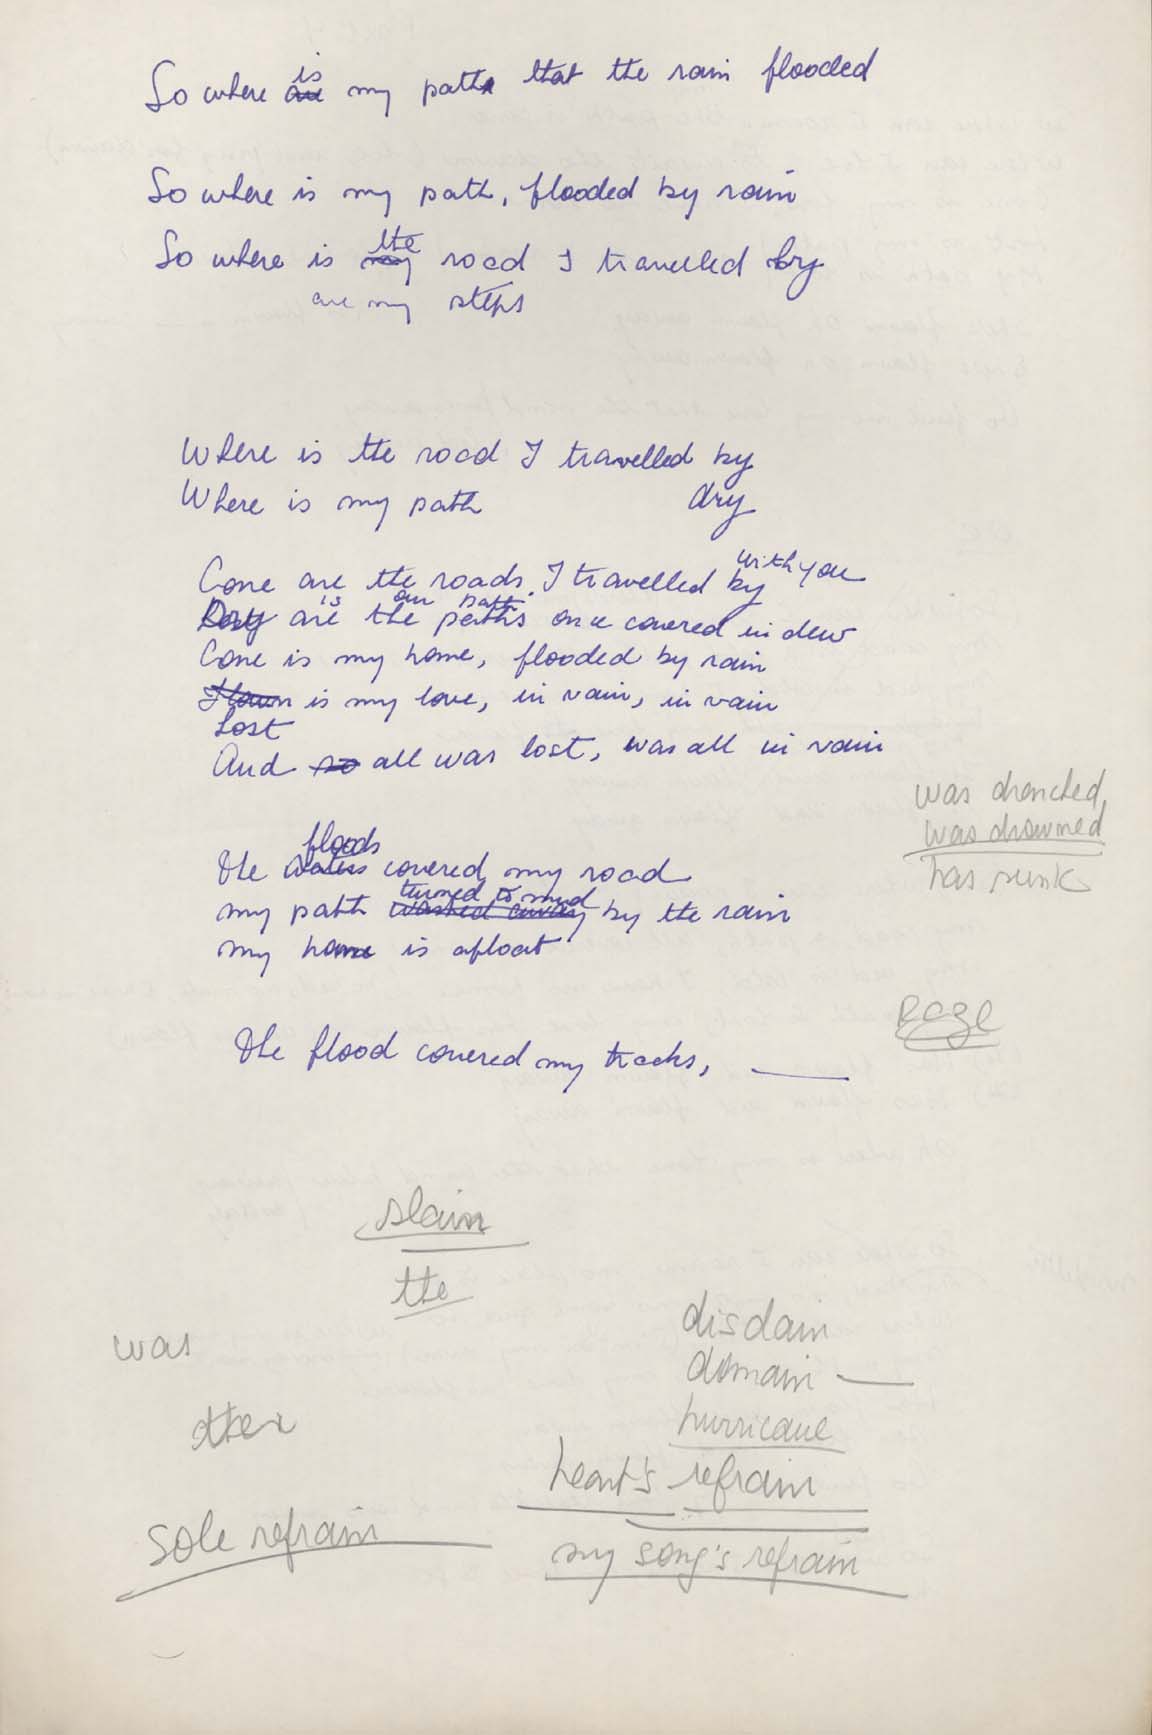 is
So where are my path that the rain flooded
So where is my path, flooded by rain
the
So where is my road I travelled by
are my steps
Where is the road I travelled by
Where is my path dry
with you
Gone are the roads I travelled by
is our path
Dry are the paths once covered in dew
Gone is my home, flooded by rain
Flown is my love, in vain, in vain
Lost
And so all was lost, was all in vain
was drenched,
was drowned
has sunk
floods
The waters covered my road
turned to mud
my path washed away by the rain
my home is afloat
Rage
The flood covered my tracks,
slain
the
disdain
was
domain
then
hurricane
heart's refrain
sole refrain
my song's refrain